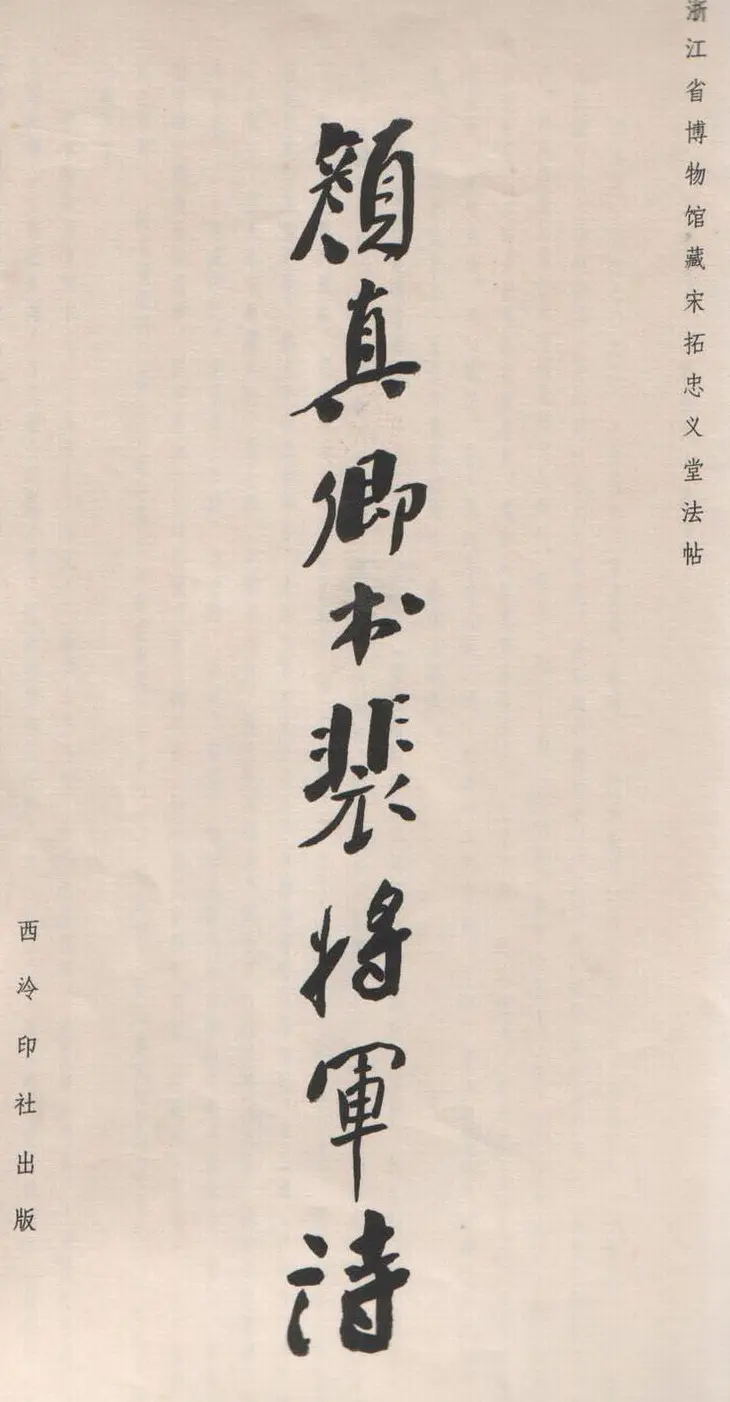 浙江省博物馆藏宋拓忠义堂法帖
顏真卿书裴将軍诗
西泠印社出版